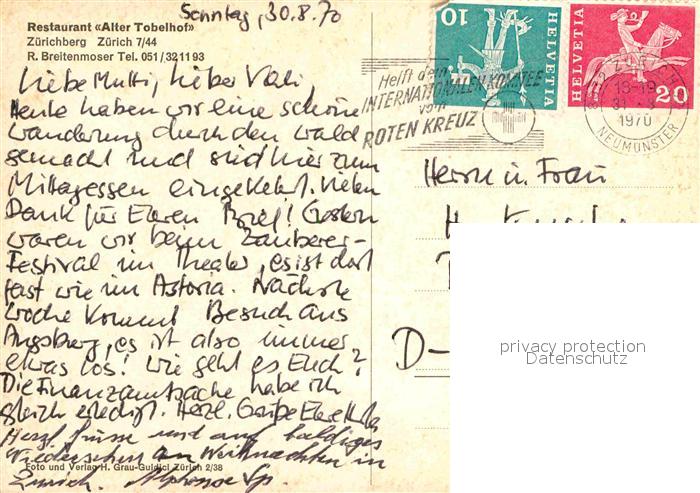 Sonntag, 30.8.70
Restaurant «Alter Tobelhof»
Zürichberg Zürich 7/44
R. Breitenmoser Tel. 051/32 11 93
Liebe Mutti, lieber Vati,
Heute haben wir eine schöne
Wanderung durch den Wald
gemacht und sind hier zum
Mittagessen eingekehrt. Vielen
Dank für Eueren Brief! Gestern
waren wir beim Zauberer-
Festival im Theater, es ist dort
fast wie im Astoria. Nächste
Woche kommt Besuch aus
Augsburg, es ist also immer
etwas los! Wie geht es Euch?
Die Finanzamtsache habe ich
gleich erledigt. Herzl. Grüße Euere
Herzl. Grüsse und auf baldiges
Wiedersehen an Weihnachten in
Zürich. Alphonse
Foto und Verlag H. Grau-Guldici Zürich 2/38
10
HELVETIA
HELVETIA
20
Helft dem
INTERNATIONALEN KOMITEE
vom
ROTEN KREUZ
ZÜRICH
18-19
31.-8
1970
NEUMÜNSTER
Herrn u. Frau
H.
D-
privacy protection
Datenschutz